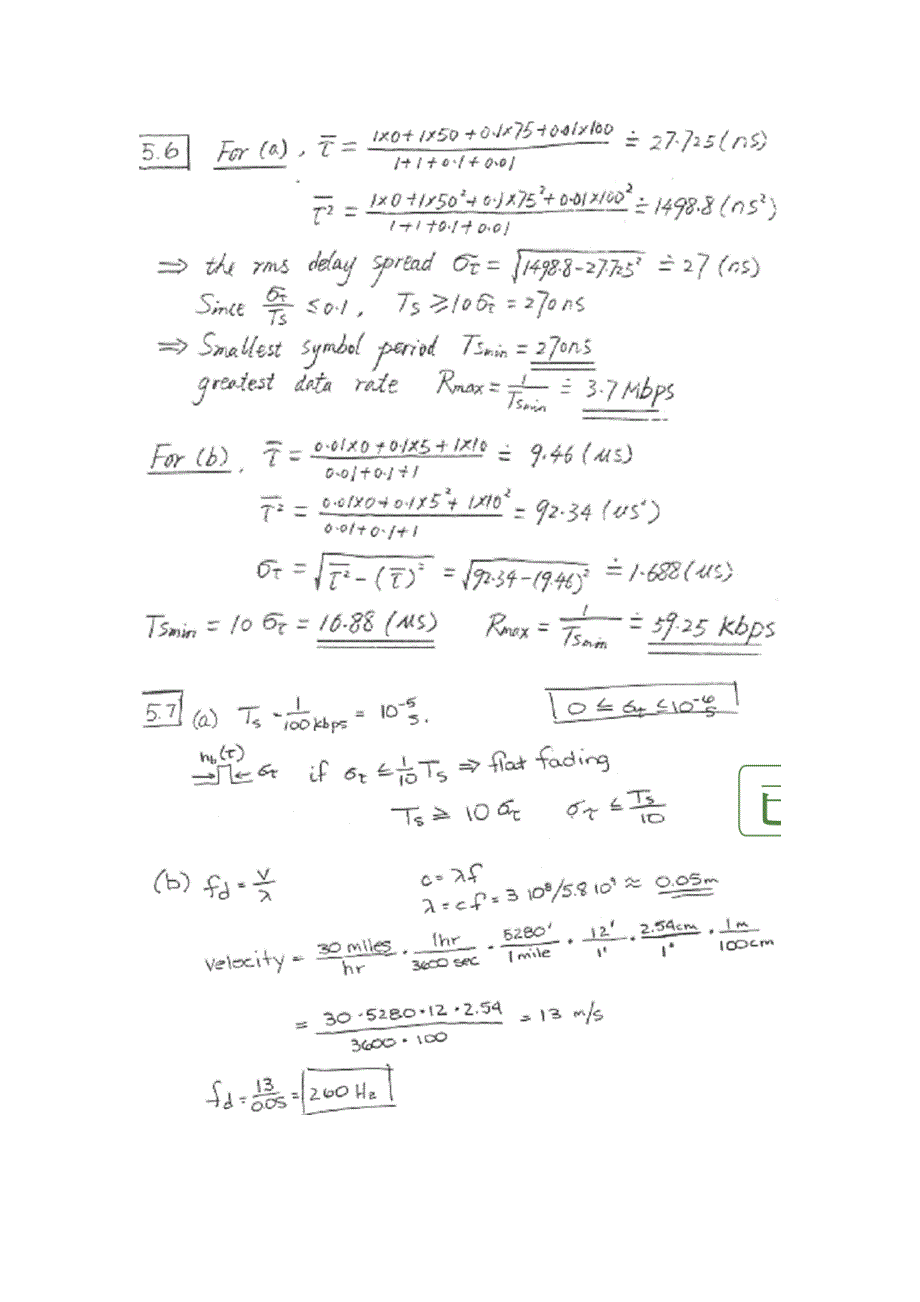 5.6 For (a), τ̄ = (1×0+1×50+0.1×75+0.01×100)/(1+1+0.1+0.01) ≐ 27.725(ns)
τ̄² = (1×0+1×50²+0.1×75²+0.01×100²)/(1+1+0.1+0.01) ≐ 1498.8(ns²)
⇒ the rms delay spread στ = √(1498.8-27.725²) ≐ 27 (ns)
Since στ/Ts ≤ 0.1, Ts ≥ 10στ = 270ns
⇒ Smallest symbol period Tsmin = 270ns
greatest data rate Rmax = 1/Tsmin ≐ 3.7 Mbps
For (b), τ̄ = (0.01×0+0.1×5+1×10)/(0.01+0.1+1) ≐ 9.46 (μs)
τ̄² = (0.01×0+0.1×5²+1×10²)/(0.01+0.1+1) = 92.34 (μs²)
στ = √(τ̄²-(τ̄)²) = √(92.34-(9.46)²) ≐ 1.688(μs)
Tsmin = 10 στ = 16.88 (μs) Rmax = 1/Tsmin ≐ 59.25 kbps
5.7 (a) Ts = 1/100kbps = 10⁻⁵ s. 0 ≤ στ ≤ 10⁻⁶ s
hb(τ) στ if στ ≤ 1/10 Ts ⇒ flat fading
Ts ≥ 10 στ στ ≤ Ts/10
(b) fd = v/λ c = λf
λ = cf = 3 10⁸/5.8 10⁹ ≈ 0.05m
velocity = 30 miles/hr · 1hr/3600 sec · 5280'/1mile · 12'/1' · 2.54cm/1" · 1m/100cm
= (30·5280·12·2.54)/(3600·100) = 13 m/s
fd = 13/0.05 = 260 Hz